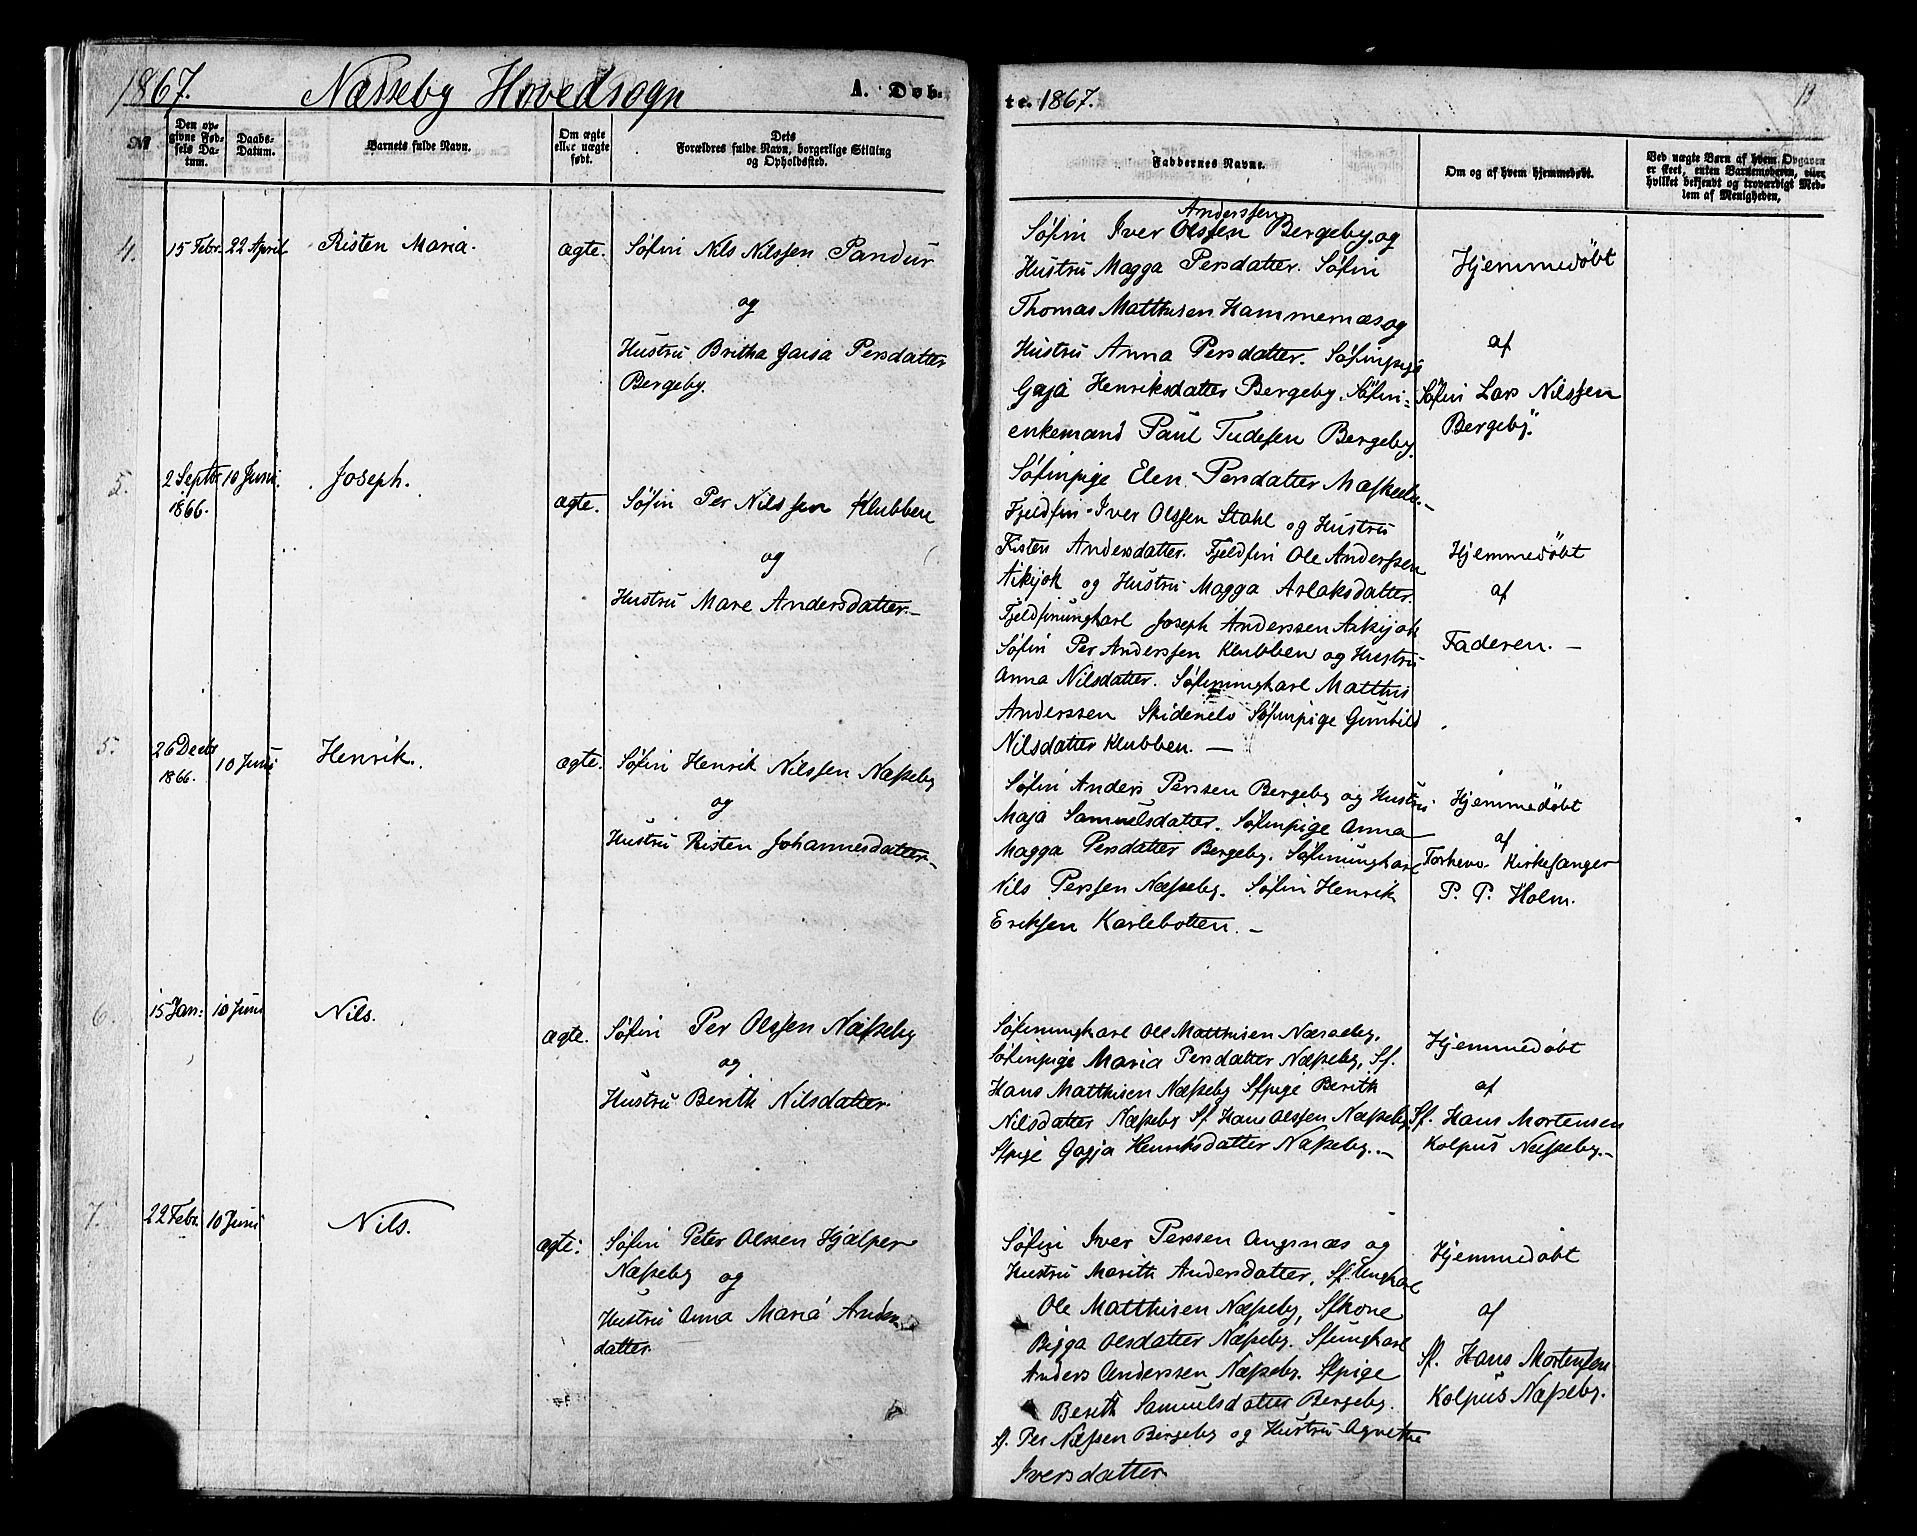 1867. Næsseby Hovedsogn A. Døb-
te. 1867. 13
№
Den op-
givne Fød-
sels Da-
tum.
Daabs-
Datum.
Barnets fulde Navn.
Om ægte
eller uægte
født.
Dets
Forældres fulde Navn, borgerlige Stilling
og Opholdssted.
Faddernes Navne.
Om og af hvem hjemmedøbt.
Ved uægte Børn af hvem Opgaven
er skeet, enten Barnemoderen, eller
hvilket bekjendt og troværdigt Med-
lem af Menigheden.
4. 15 Febr. 22 April Risten Maria. ægte. Søfin Nils Nilssen Pandur
og
Hustru Britha Gaisa Persdatter
Bergeby.
Anderssen
Søfin Iver Olssen Bergeby og
Hustru Magga Persdatter. Søfin
Thomas Matthisen Hammernæs og
Hustru Anna Persdatter. Søfinpige
Gaja Henriksdatter Bergeby. Søfin-
enkemand Paul Tudesen Bergeby.
Søfinpige Elen Persdatter
Hjemmedøbt
af
Søfin Lars Nilssen
Bergeby.
5. 2 Septbr 10 Juni. Joseph. ægte. Søfin Per Nilssen Klubben
1866.
og
Hustru Mare Andersdatter.-
Fjeldfin Iver Olssen Stahl og Hustru
Risten Andersdatter. Fjeldfin Ole Anderssen
Aikijok og Hustru Magga Aslaksdatter.
Fjeldfinungkarl Joseph Anderssen Aikijok
Søfin Per Anderssen Klubben og Hustru
Anna Nilsdatter. Søfinungkarl Matthis
Anderssen Skidenelv Søfinpige Gunhild
Nilsdatter Klubben. —
Hjemmedøbt
af
Faderen. —
5. 26 Decbr 10 Juni Henrik. ægte. Søfin Henrik Nilssen Næsseby
1866.
og
Hustru Risten Johannesdatter-
Søfin Anders Perssen Bergeby og Hustru
Maja Samuelsdatter. Søfinpige Anna
Magga Persdatter Bergeby. Søfinungkarl
Nils Perssen Næsseby. Søfin Henrik
Eriksen Karlebotten. —
Hjemmedøbt
af
Forhenv. Kirkesanger
P. P. Holm.
6. 15 Jan: 10 Juni Nils. ægte. Søfin Per Olssen Næsseby
og
Hustru Berith Nilsdatter.
Søfinungkarl Ole Matthisen Næsseby.
Søfinpige Maria Persdatter Næsseby, Sf.
Hans Matthisen Næsseby Sfpige Berith
Nilsdatter Næsseby Sf. Hans Olssen Næsseby
Sfpige Gagja Henriksdatter Næsseby.-
Hjemmedøbt
af
Sf. Hans Mortensen
Kolpus Næsseby.-
7. 22 Febr. 10 Juni Nils. ægte: Søfin Peter Olssen Hjælper
Næsseby og
Hustru Anna Maria Anders-
datter.
Søfin Iver Perssen Angsnæs og
Hustru Marith Andersdatter, Sf. Ungkarl
Ole Matthisen Næsseby, Sfkone
Bigga Olsdatter Næsseby. Sfungkarl
Anders Anderssen Næsseby. Sfpige
Berith Samuelsdatter Bergeby.
Sf. Per Nilssen Bergeby og Hustru Agnethe
Iversdatter.
Hjemmedøbt
af
Sf. Hans Mortensen
Kolpus Næsseby.